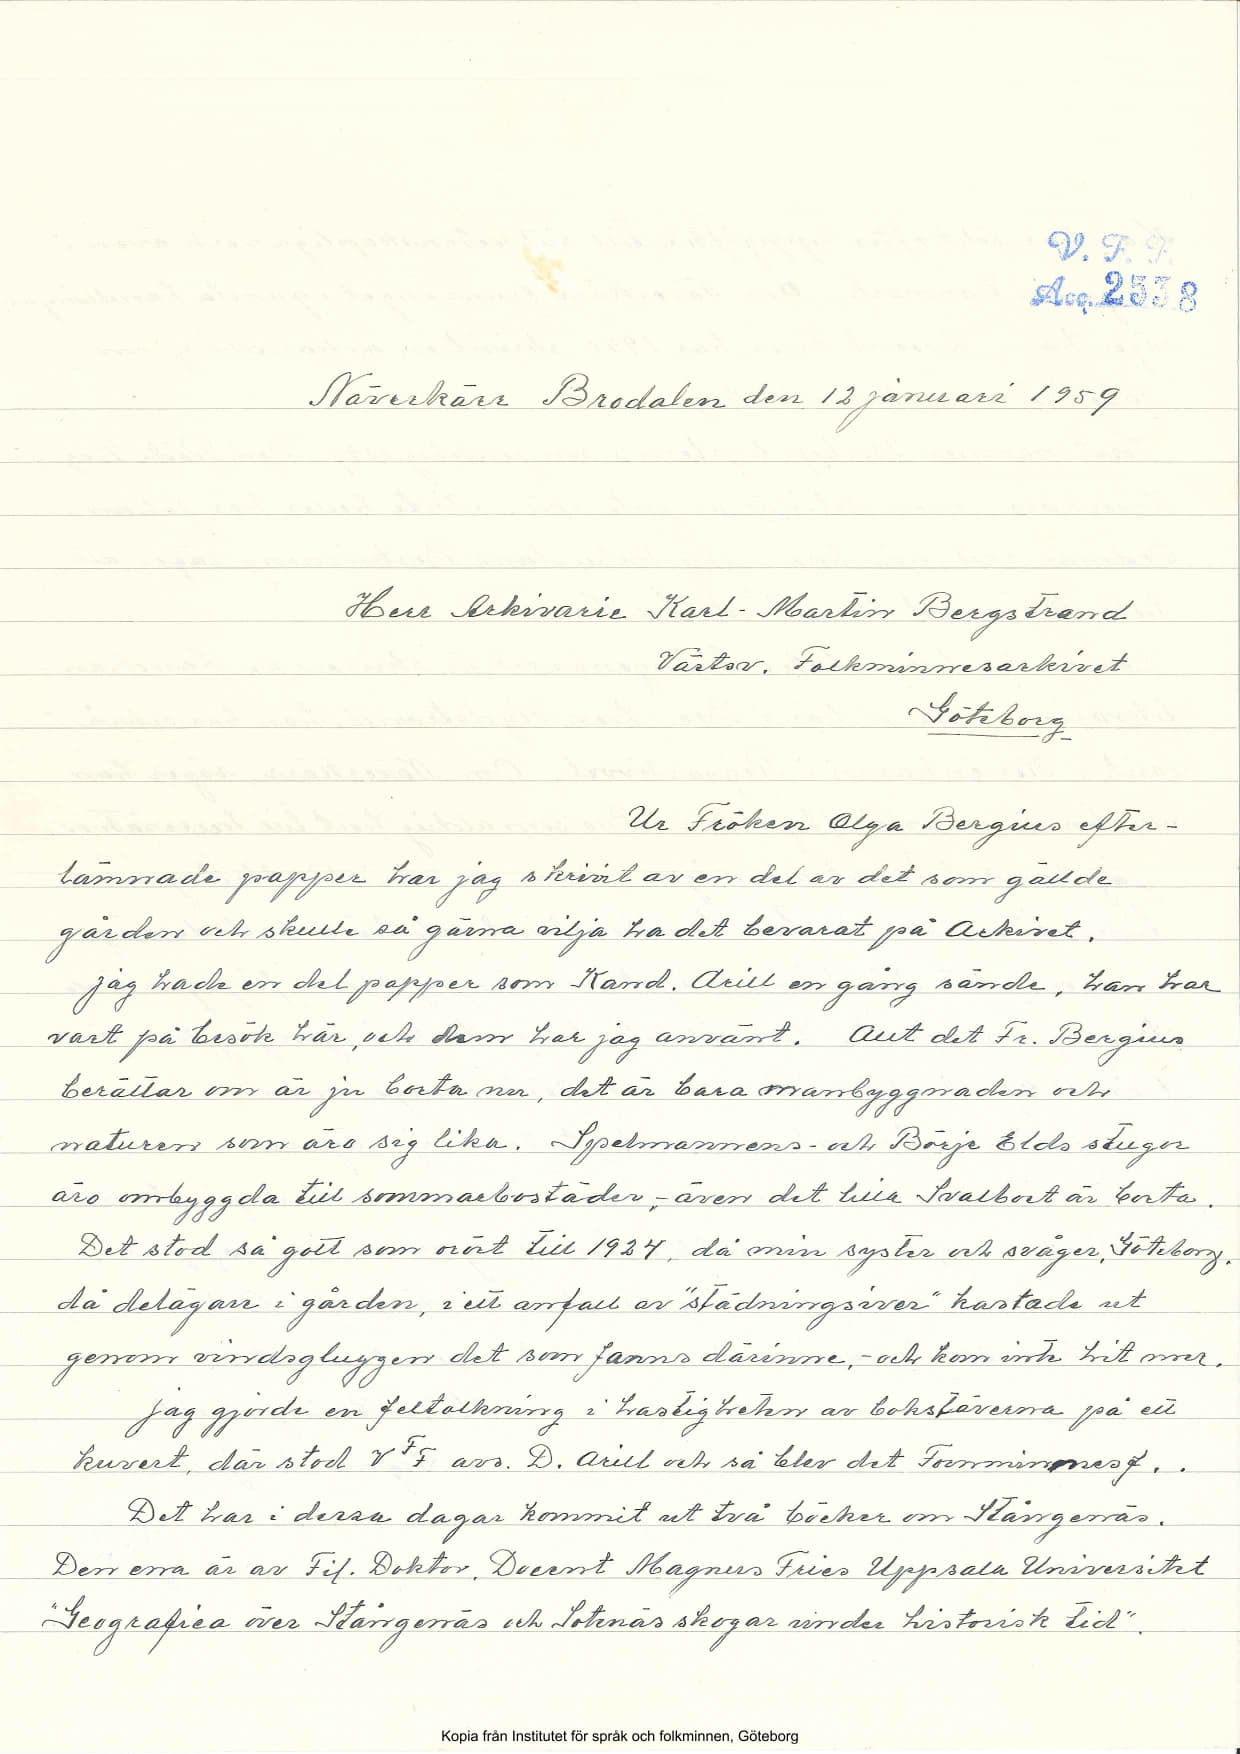 V. F. F.
Acc. 2538
Näverkärr Brodalen den 12 januari 1959
Herr Arkivarie Karl-Martin Bergstrand
Västsv. Folkminnesarkivet
Göteborg
Ur Fröken Olga Bergius efter-
lämnade papper har jag skrivit av en del av det som gällde
gården och skulle så gärna vilja ha det bevarat på Arkivet.
jag hade en del papper som Kand. Arill en gång sände, han har
vart på besök här, och dem har jag använt. Allt det Fr. Bergius
berättar om är ju borta nu, det är bara manbyggnaden och
naturen som äro sig lika. Spelmannens- och Börje Elds stugor
äro ombyggda till sommarbostäder,- även det lilla Svalbort är borta.
Det stod så gott som orört till 1924, då min syster och svåger, Göteborg,
då delägare i gården, i ett anfall av "städningsiver" kastade ut
genom vindsgluggen det som fanns därinne,- och kom inte hit mer.
jag gjorde en feltolkning i hastigheten av bokstäverna på ett
kuvert, där stod V F F avs. D. Arill och så blev det Fornminnesf. .
Det har i dessa dagar kommit ut två böcker om Stångenäs.
Den ena är av Fil. Doktor, Docent Magnus Fries Uppsala Universitet
"Geografica över Stångenäs och Sotenäs skogar under historisk tid".
Kopia från Institutet för språk och folkminnen, Göteborg